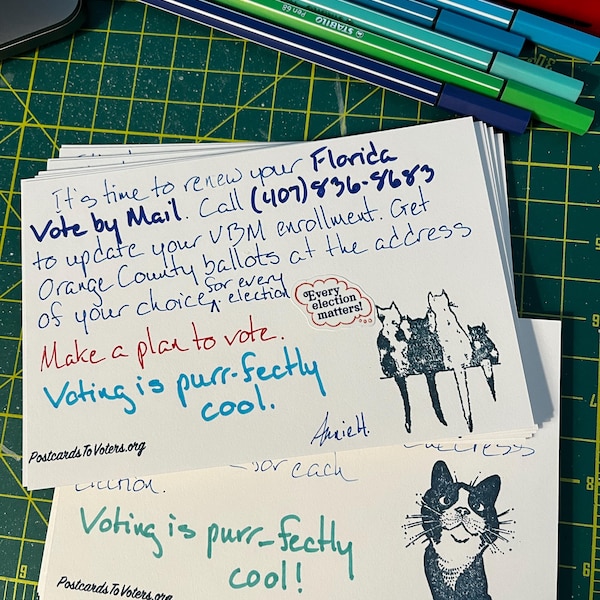 STABILO Pen 68
It's time to renew your Florida
Vote by Mail. Call (407)836-8683
to update your VBM enrollment. Get
Orange County ballots at the address
of your choice for every election
Every
election
matters!
Make a plan to vote.
Voting is purr-fectly
cool.
AnnieH.
PostcardsToVoters.org
for each
Voting is purr-fectly
cool!
PostcardsToVoters.org